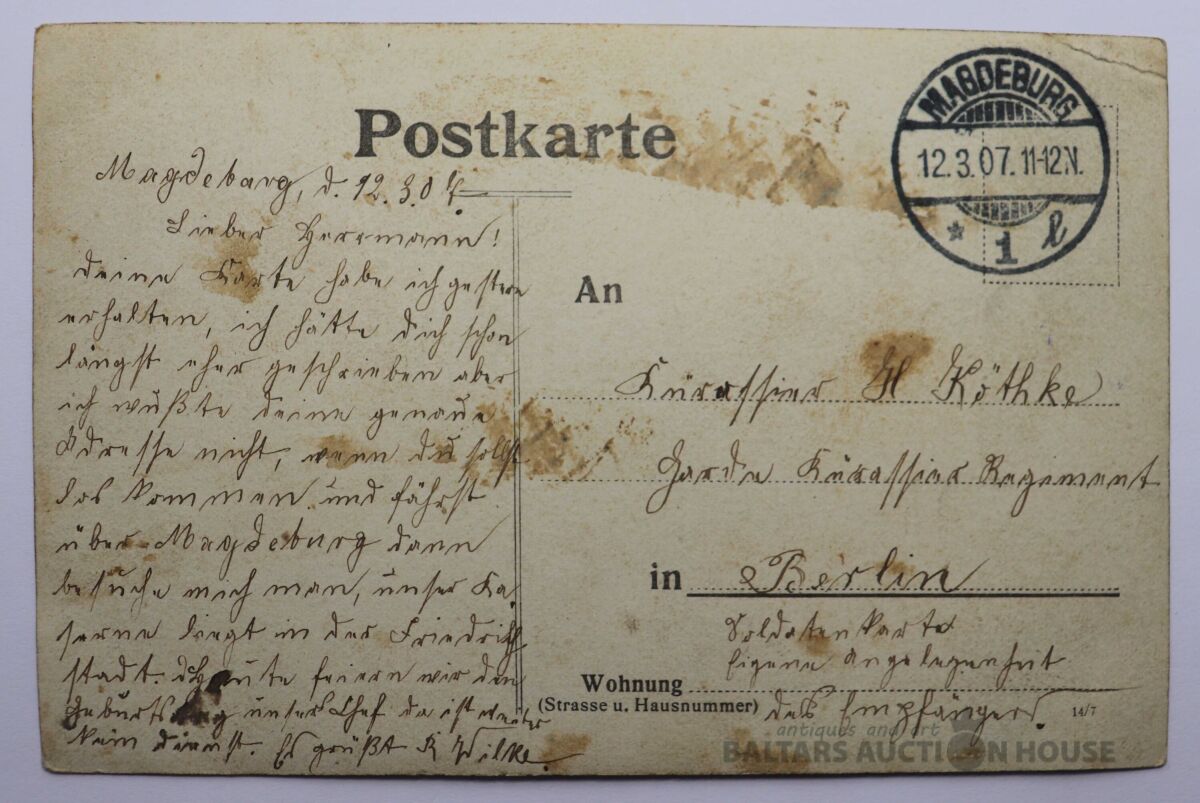 Postkarte
MAGDEBURG
12.3.07. 11-12N.
* 1 l
Magdeburg, d. 12.3.07.
Lieber Herrmann!
deine Karte habe ich gestern
erhalten, ich hätte dich schon
längst eher geschrieben aber
ich wußte deine genaue
Adresse nicht, wenn du sollst
los kommen und fährst
über Magdeburg dann
besuche mich man, unser Ka
serne liegt in der Friedrich
stadt. Heute feiern wir den
Geburtstag unser Chef da ist weiter
kein dienst. Es grüßt R Wilke.
An
Kürassier H Köthke
Garde Kürassier Regiment
in Berlin
Soldatenkarte
Eigene Angelegenheit
des Empfängers.
Wohnung
(Strasse u. Hausnummer)
14/7
antiques and art
BALTARS AUCTION HOUSE